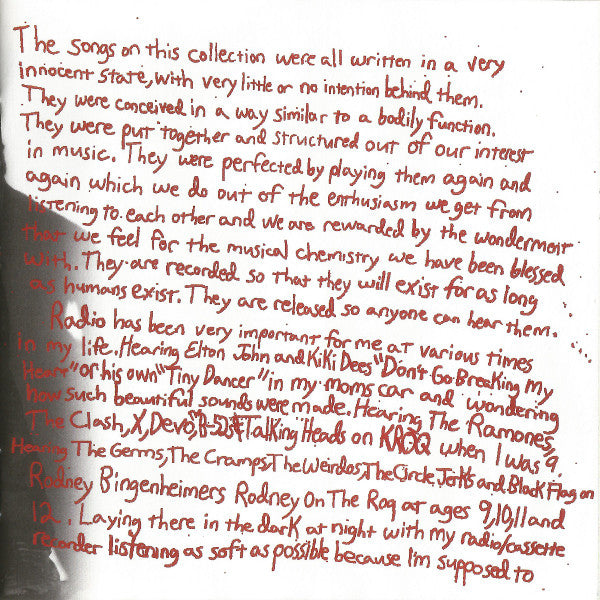 The songs on this collection were all written in a very
innocent state, with very little or no intention behind them.
They were conceived in a way similar to a bodily function.
They were put together and structured out of our interest
in music. They were perfected by playing them again and
again which we do out of the enthusiasm we get from
listening to each other and we are rewarded by the wonderment
that we feel for the musical chemistry we have been blessed
with. They are recorded so that they will exist for as long
as humans exist. They are released so anyone can hear them.
Radio has been very important for me at various times
in my life. Hearing Elton John and Kiki Dees "Don't Go Breaking My
Heart" or his own "Tiny Dancer" in my moms car and wondering
how such beautiful sounds were made. Hearing The Ramones,
The Clash, X, Devo, B-52s & Talking Heads on KROQ when I was 9.
Hearing The Germs, The Cramps, The Weirdos, The Circle Jerks and Black Flag on
Rodney Bingenheimers Rodney On The Roq at ages 9, 10, 11 and
12. Laying there in the dark at night with my radio/cassette
recorder listening as soft as possible because I'm supposed to